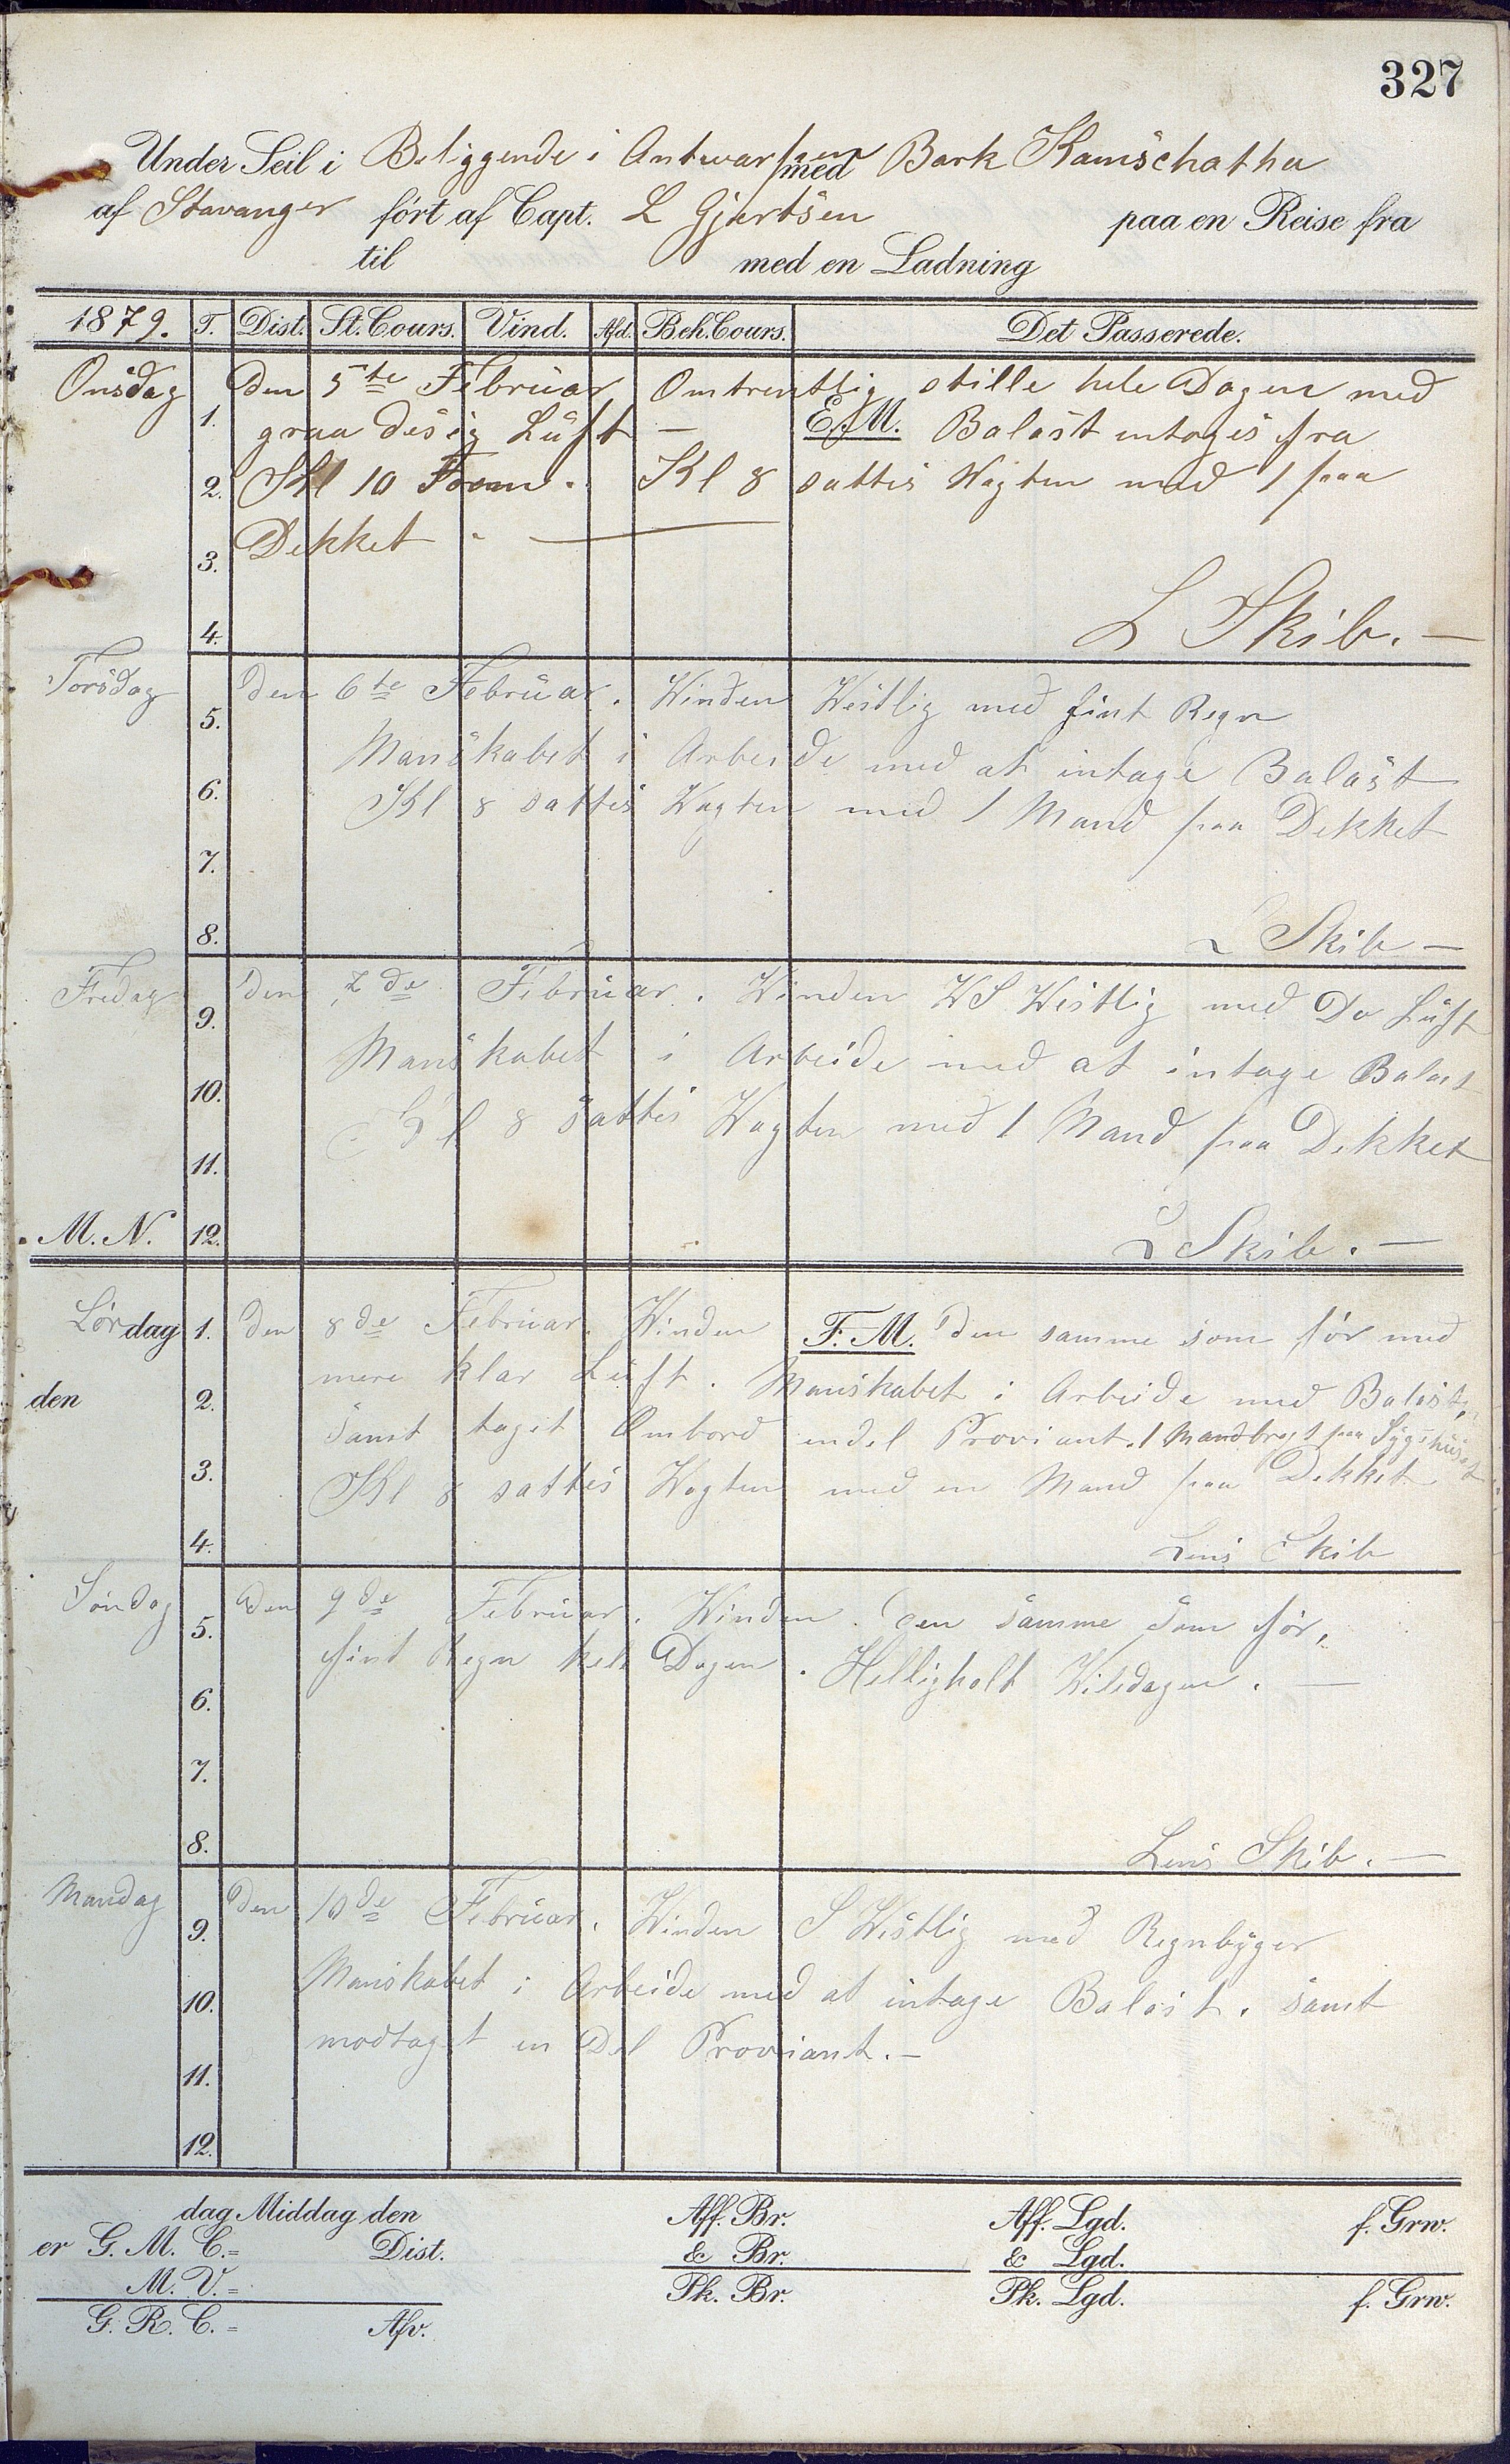 327
Under Seil i Beliggende i Antwarpen med Bark Kamschatha
af Stavanger ført af Capt. L Gjertsen paa en Reise fra
til med en Ladning
1879. T. Dist. St. Cours. Vind. Afd. Beh. Cours. Det Passerede.
Onsdag den 5te Februar Omtrentlig stille hele Dagen med
1. graa desig Luft — E.M. Balast intoges fra
2. Kl 10 Form. Kl 8 sattes Wagten med 1 paa
3. Dekket —
4. L Skib. —
Torsdag den 6te Februar. Winden Westlig med fint Regn
5.
Manskabet i Arbeide med at intage Balast
6. Kl 8 sattes Wagten med 1 Mand paa Dekket
7.
8. L Skib —
Fredag den 7de Februar. Winden WS Westlig med Do Luft
9.
Manskabet i Arbeide med at intage Balast
10. Kl 8 sattes Wagten med 1 Mand paa Dekket
11.
M. N. 12. L Skib. —
Lørdag 1. den 8de Februar. Winden F. M. den samme som før med
mere klar Luft. Manskabet i Arbeide med Balast,
den 2. samt taget Ombord endel Proviant. 1 Mand bragt paa Sygehuset
3. Kl 8 sattes Wagten med en Mand paa Dekket
4. Lens Skib
Søndag den 9de Februar. Winden den samme som før,
5. fint Regn hele Dagen. Helligholt Wiledagen. —
6.
7.
8. Lens Skib. —
Mandag den 10de Februar. Winden S Westlig med Regnbyger
9.
Manskabet i Arbeide med at intage Balast. samt
10. modtaget en Del Proviant. —
11.
12.
dag Middag den Aff. Br. Aff. Lgd. f. Grw.
er G. M. C.= Dist. & Br. & Lgd.
M. V.= Pk. Br. Pk. Lgd. f. Grw.
G. R. C.= Afv.